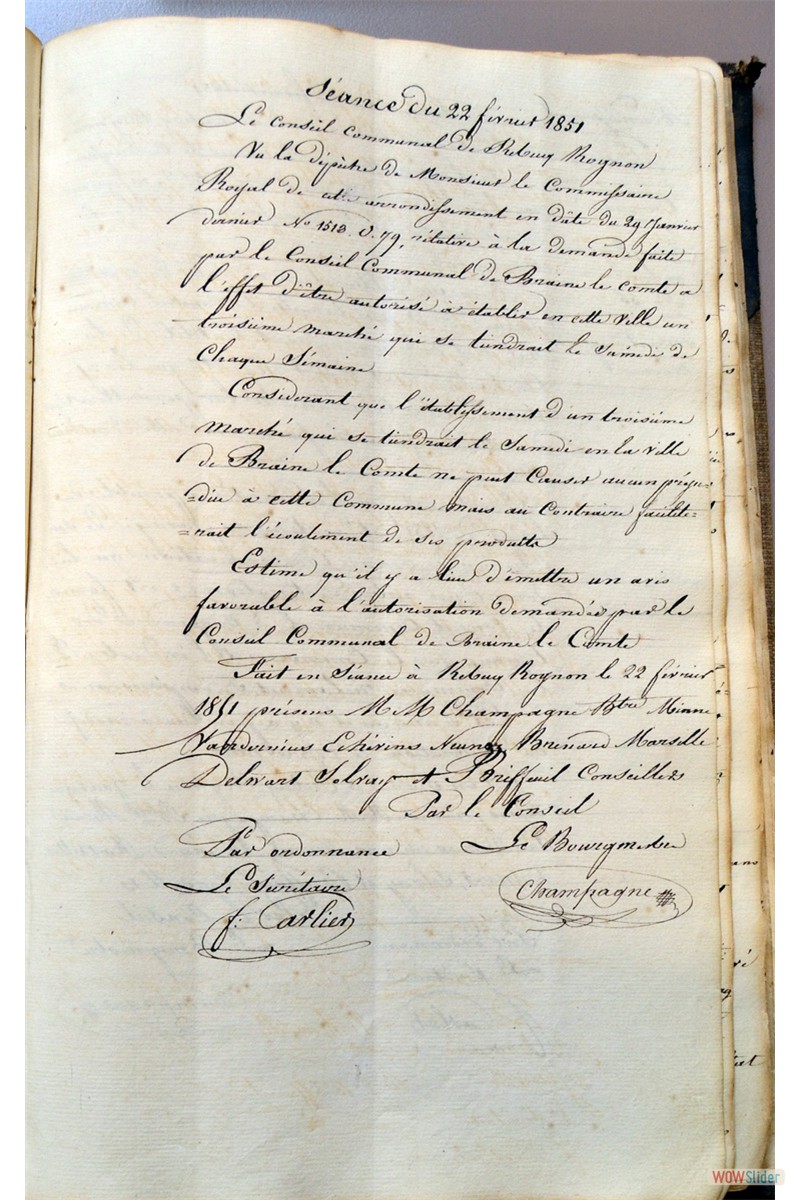 Séance du 22 février 1851
Le conseil communal de Rebecq Rognon
Vu la dépêche de Monsieur le Commissaire
Royal de cette arrondissement en date du 29 Janvier
dernier No 1513. O. 79, rélative à la demande faite
par le Conseil Communal de Braine le comte a
l'effet d'être autorisé à établer en cette ville un
troisième marché qui se tiendrait le Samedi de
Chaque Sémaine
Considerant que l'établissement d'un troisième
Marché qui se tiendrait le Samedi en la ville
de Braine le Comte ne peut Causer aucun préju-
-dice à cette Commune mais au Contraire facilite-
-rait l'écoulement de ses produits
Estime qu'il y a lieu d'émettre un avis
favorable à l'autorisation demandée par le
Conseil Communal de Braine le Comte
Fait en Séance à Rebecq Rognon le 22 février
1851 présens MM Champagne Btre Minne
Echévins Brenard
Delwart et Briffeuil Conseillers
Par le Conseil
Par ordonnance Le Bourgmestre
Le Secrétaire Champagne
f: Carlier
WOWSlider